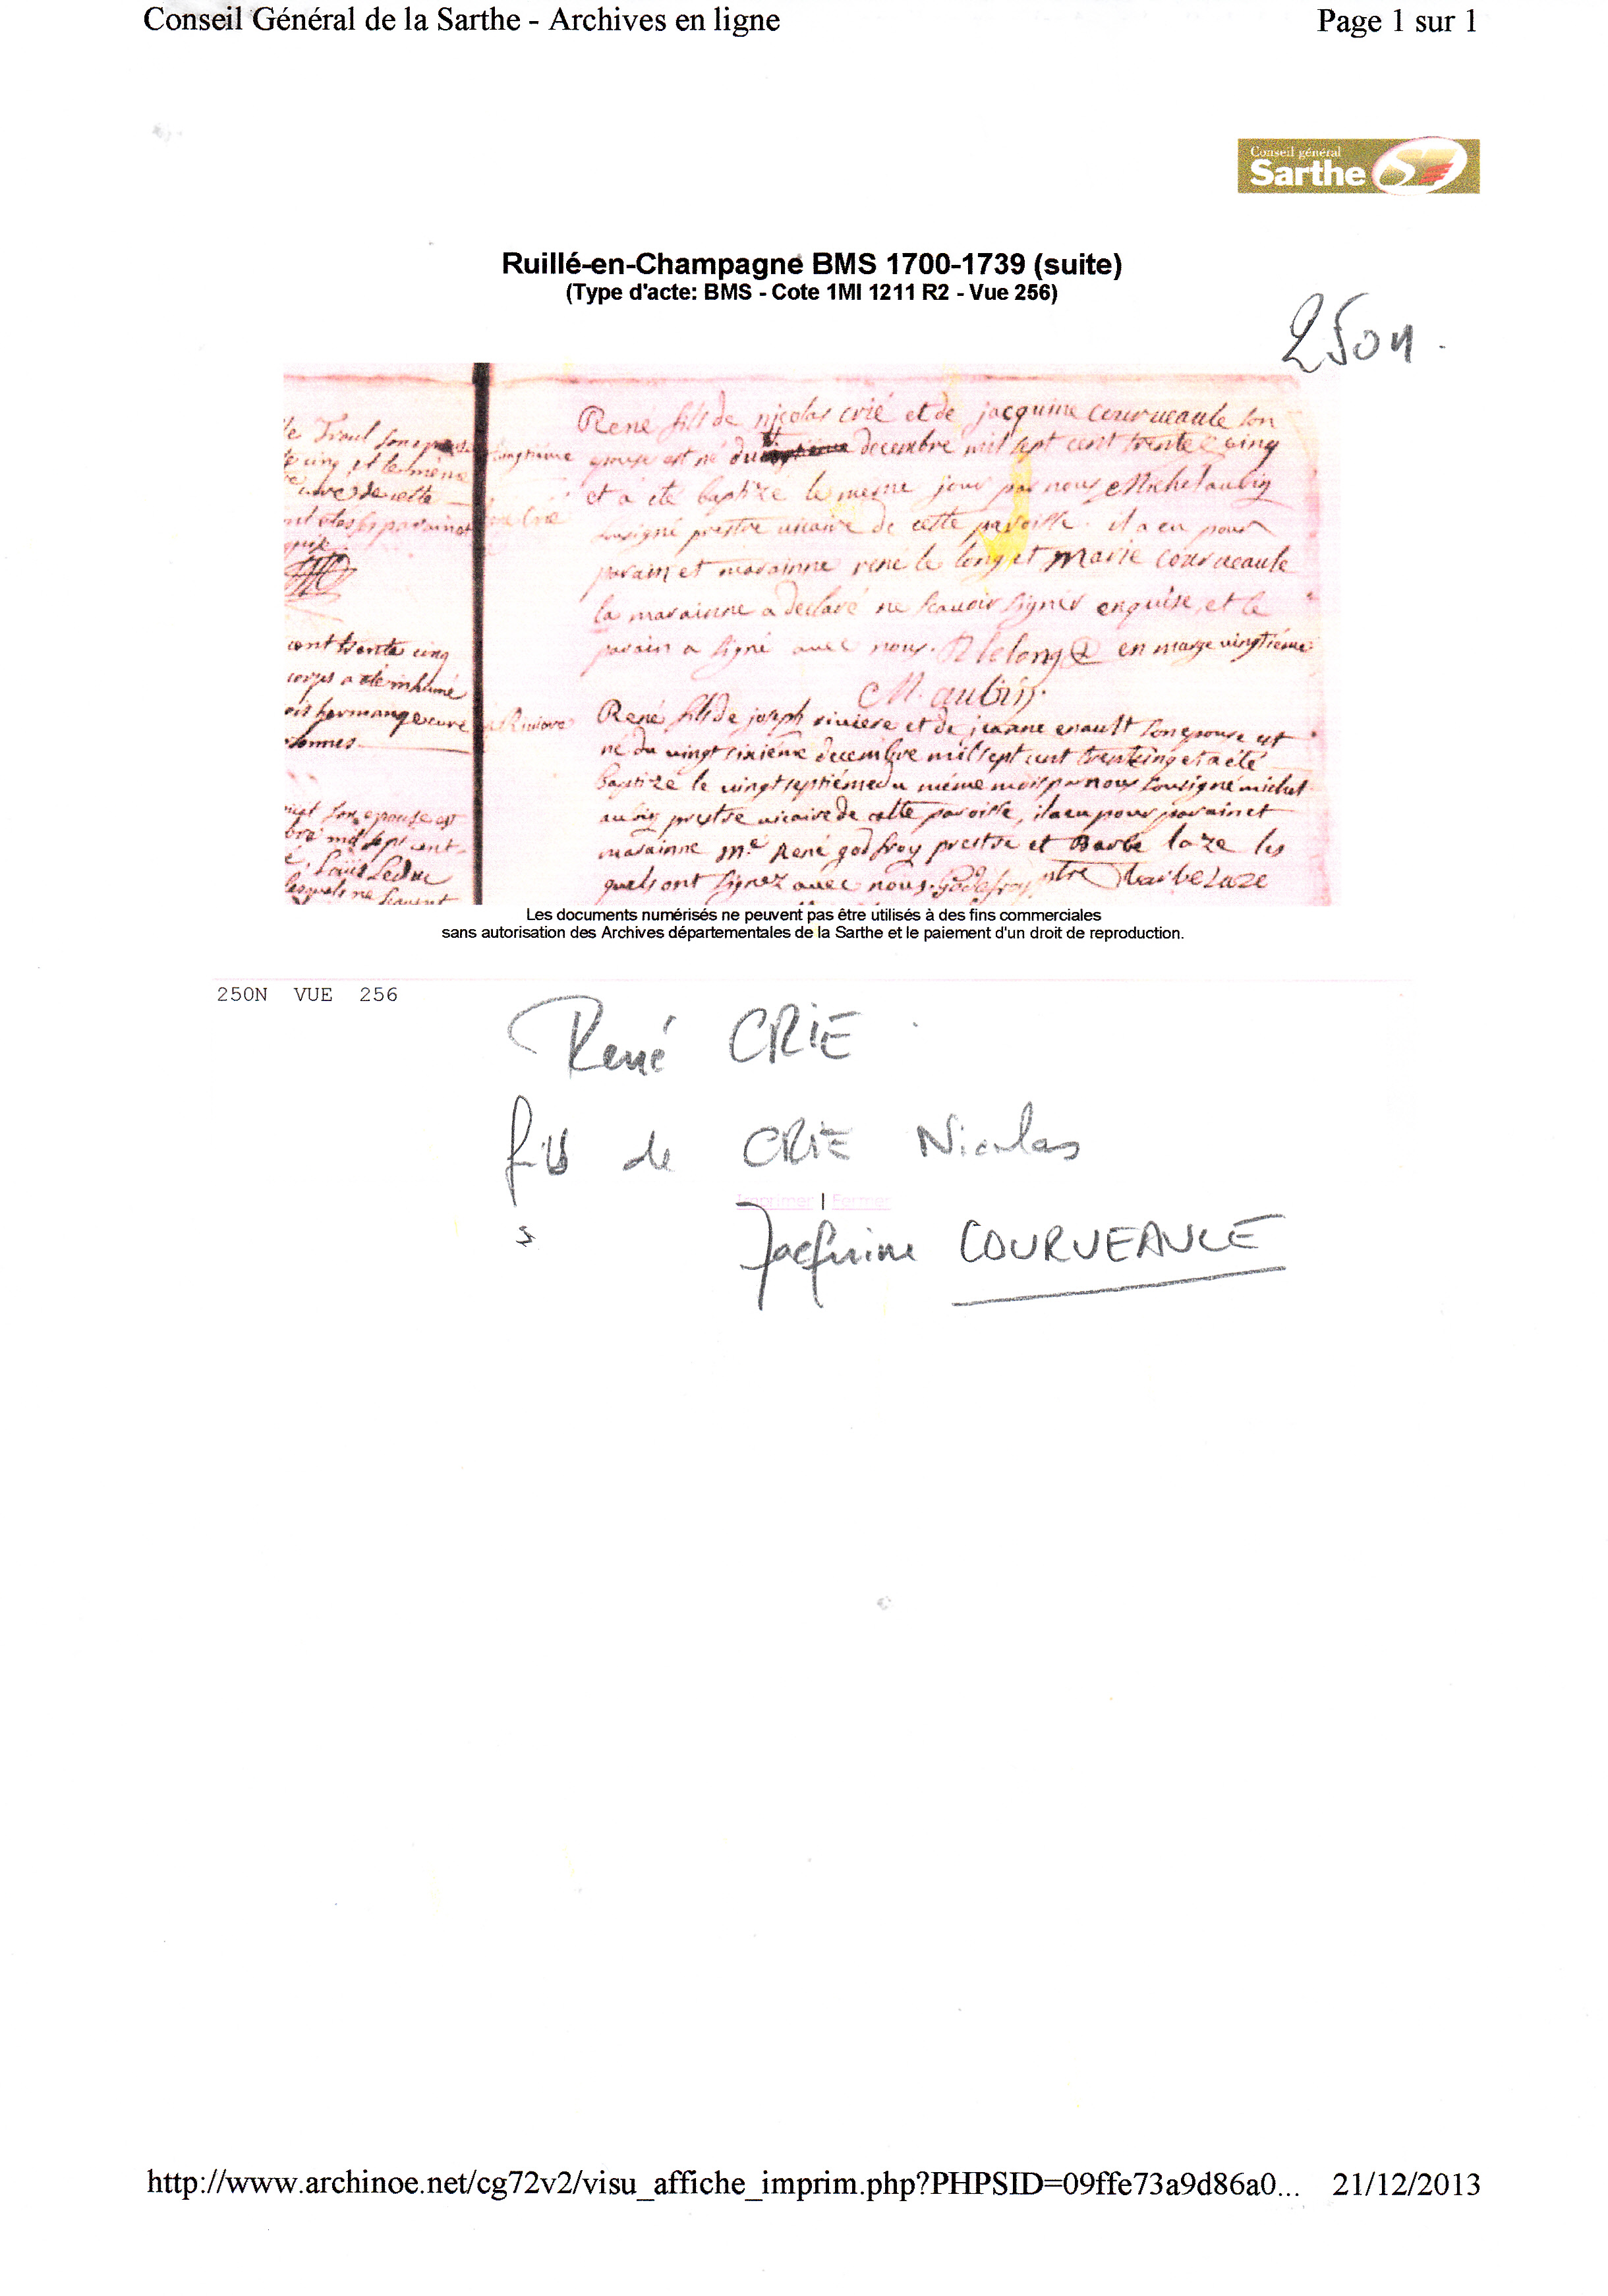 Conseil Général de la Sarthe - Archives en ligne
Page 1 sur 1
Conseil général
Sarthe
Ruillé-en-Champagne BMS 1700-1739 (suite)
(Type d'acte: BMS - Cote 1MI 1211 R2 - Vue 256)
250N.
cinq et le même
cent trente cinq
corps a été inhumé
son epouse est
mil sept cent
Louis Leduc
lesquels ne
vingtiéme
Riviere
René fils de nicolas crié et de jacquine courveaule son
epouse est né du decembre mil sept cent trente cinq
et a été baptizé le mesme jour par nous Michel aubin
sousigné prestre vicaire de cette paroisse. il a eu pour
parain et marainne rené le long et Marie courveaule
la marainne a declaré ne scavoir signer enquise, et le
parain a signé avec nous. R lelong en marge vingtiéme
M. aubin.
René fils de joseph riviere et de jeanne enault son epouse est
né du vingt sixiéme decembre mil sept cent trente cinq et a été
baptizé le vingt septiéme du méme mois par nous sousigné michel
aubin prestre vicaire de cette paroisse, il a eu pour parain et
marainne Me René godfroy prestre et Barbe laze les
quels ont signez avec nous. Godefroy ptre barbe Laze
Les documents numérisés ne peuvent pas être utilisés à des fins commerciales
sans autorisation des Archives départementales de la Sarthe et le paiement d'un droit de reproduction.
250N VUE 256
René CRIE
fils de CRIE Nicolas
Imprimer | Fermer
Jacquine COURVEAULE
http://www.archinoe.net/cg72v2/visu_affiche_imprim.php?PHPSID=09ffe73a9d86a0... 21/12/2013